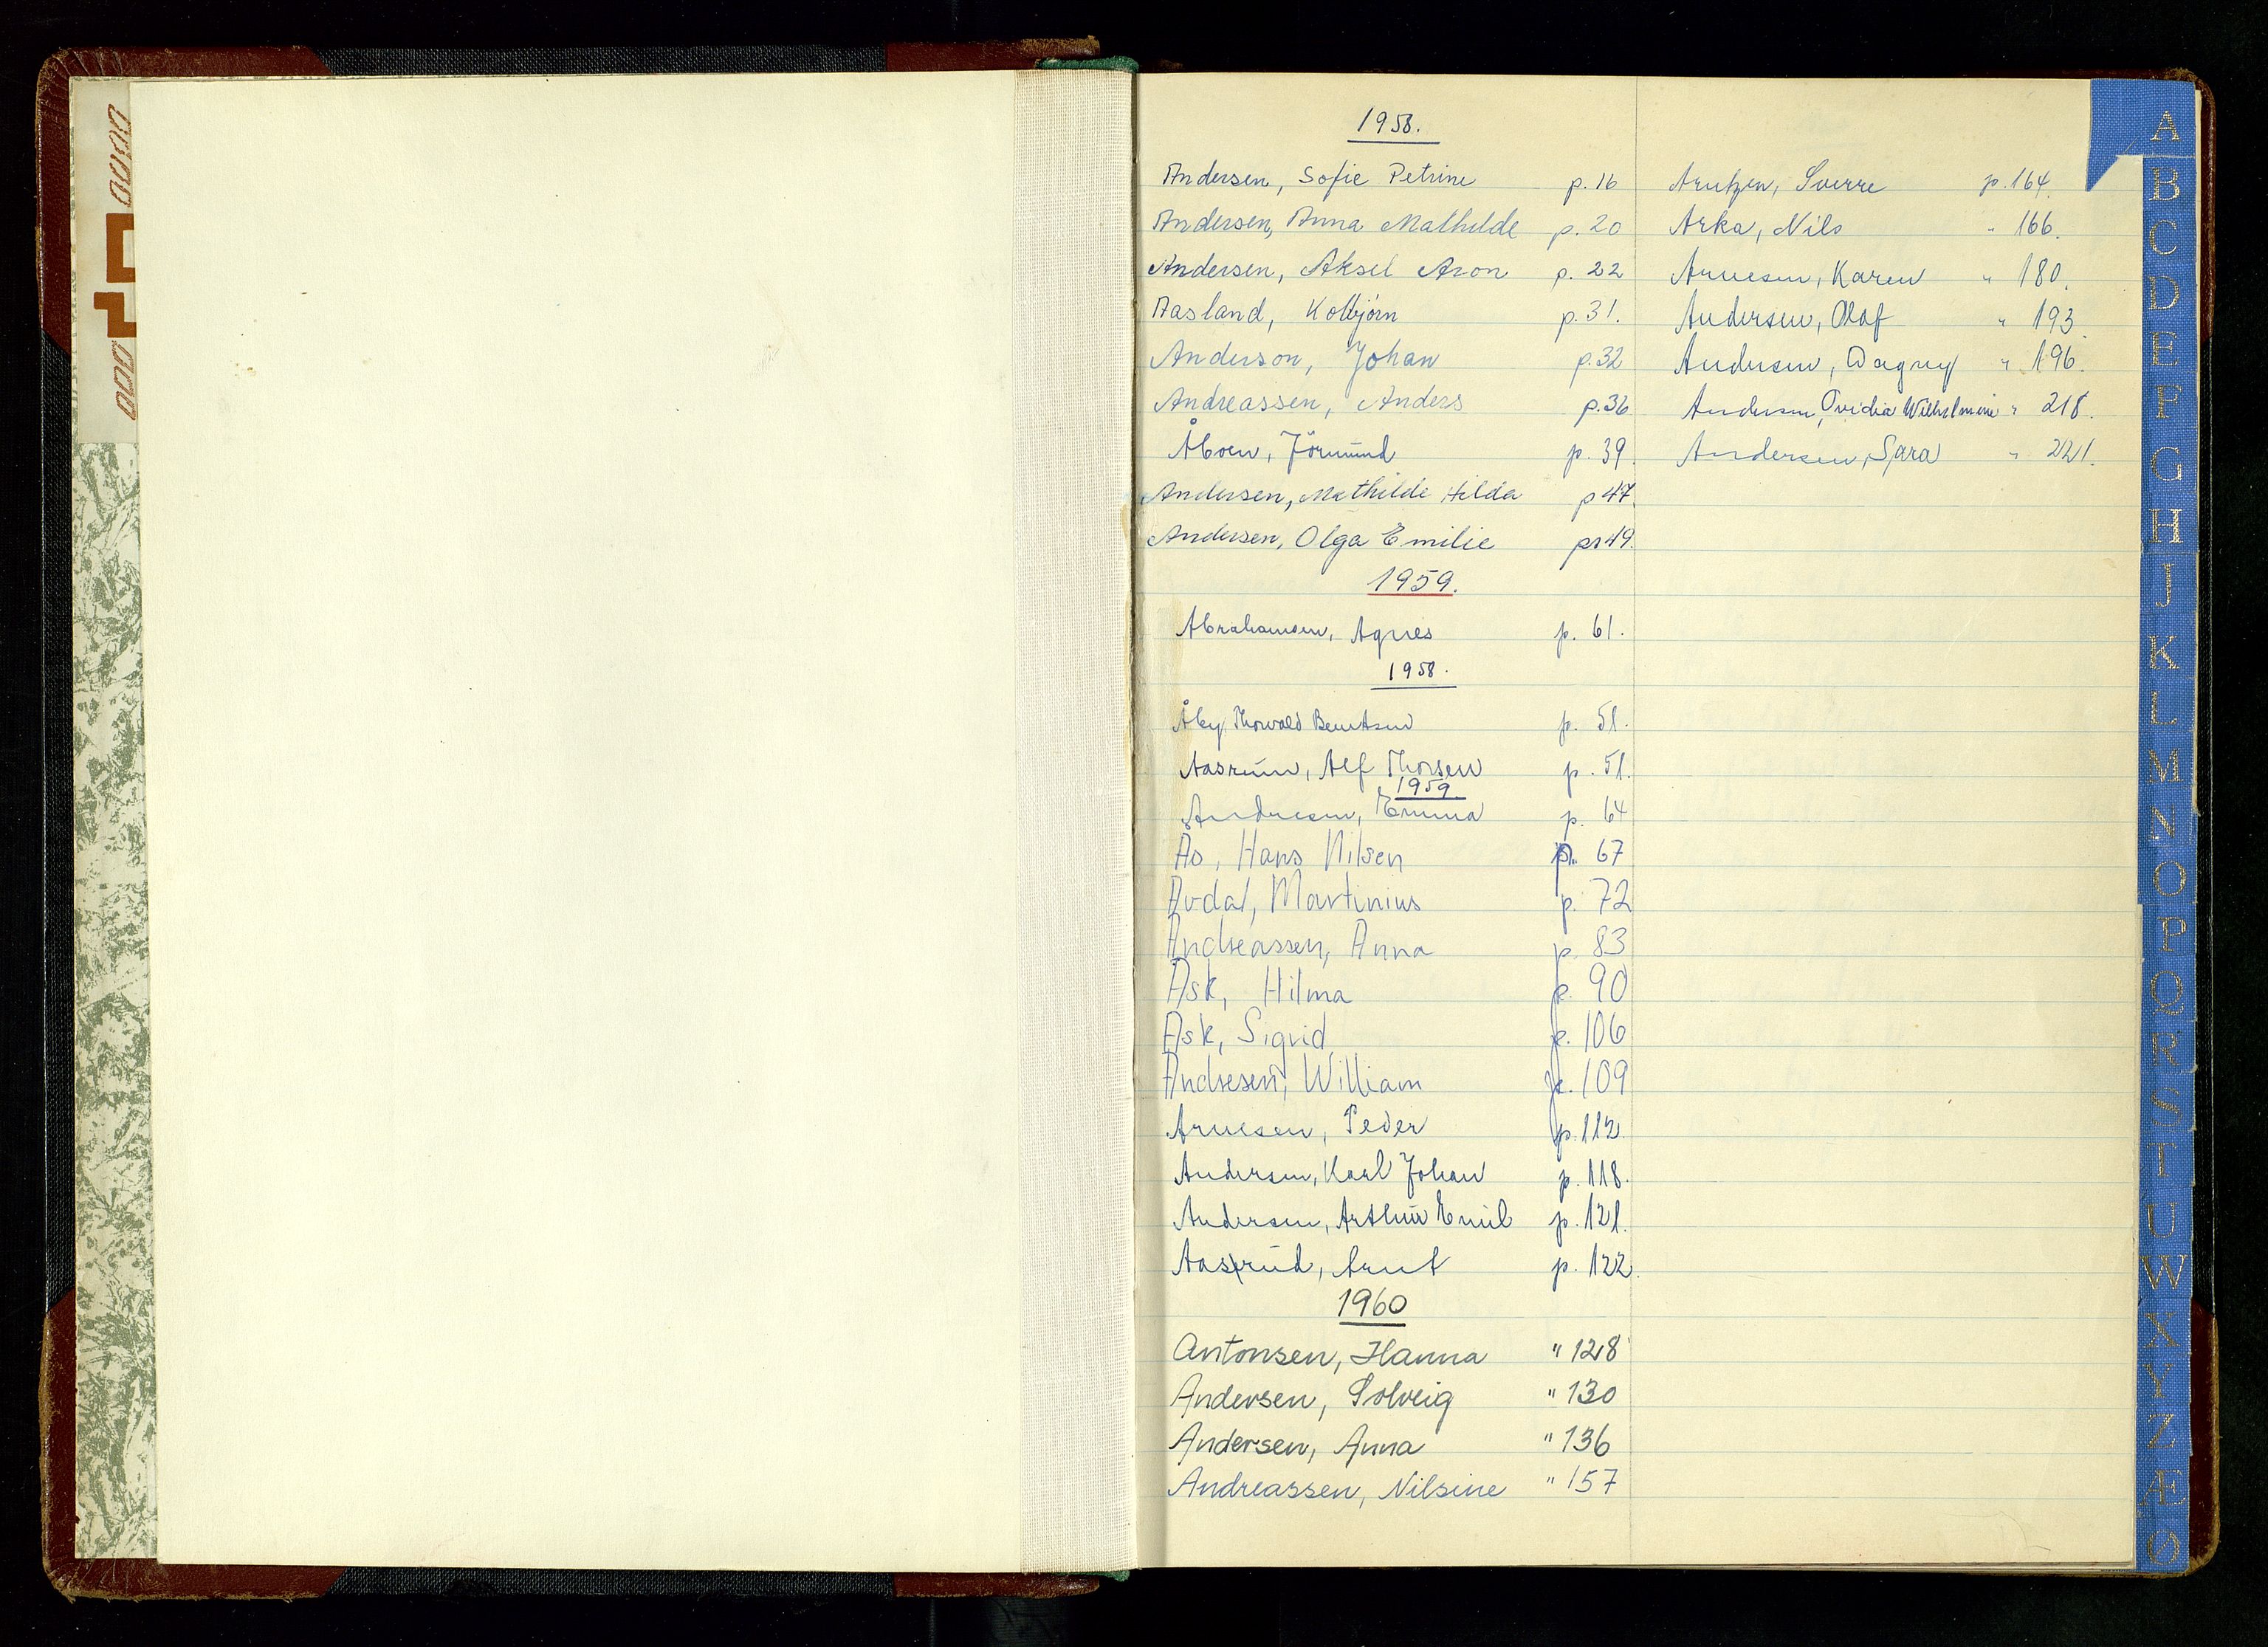 1958.
Andersen, Sofie Petrine p. 16
Andersen, Anna Mathilde p. 20
Andersen, Aksel Aron p. 22
Aasland, Kolbjørn p. 31.
Anderson, Johan p. 32
Andreassen, Anders p. 36
Åboen, Jørmund p. 39.
Andersen, Mathilde Hilda p 47.
Andersen, Olga Emilie p 49.
1959.
Abrahamsen, Agnes p. 61.
1958.
Åby, Thorvald Berntsen p. 51.
Aasrum, Alf Thorsen p. 51.
1959.
Andresen, Emma p. 64
Ås, Hans Nilsen p. 67
Avdal, Martinius p. 72
Andreassen, Anna p. 83
Ask, Hilma p. 90
Ask, Sigrid p. 106
Andresen, William p. 109
Arnesen, Peder p. 112.
Andersen, Karl Johan p. 118.
Andersen, Arthur Emil p. 121.
Aasrud, Arnt p. 122.
1960
Antonsen, Hanna " 128
Andersen, Solveig " 130
Andersen, Anna " 136
Andreassen, Nilsine " 157
Arntzen, Sverre p. 164.
Arka, Nils " 166.
Arnesen, Karen " 180.
Andersen, Olaf " 193
Andersen, Dagny " 196.
Andersen, Ovidia Wilhelmine " 218.
Andersen, Sara " 221.
A
B
C
D
E
F
G
H
J
K
L
M
N
O
P
Q
R
S
T
U
W
X
Y
Z
Æ
Ø